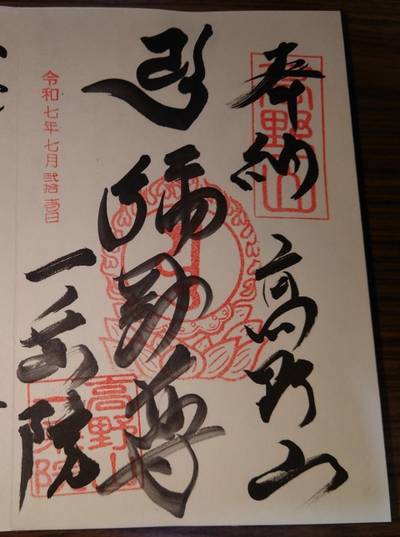 奉納
高野山
高野山
彌勒尊
令和七年七月弐拾壱日
一乗院
高野山
一乗院